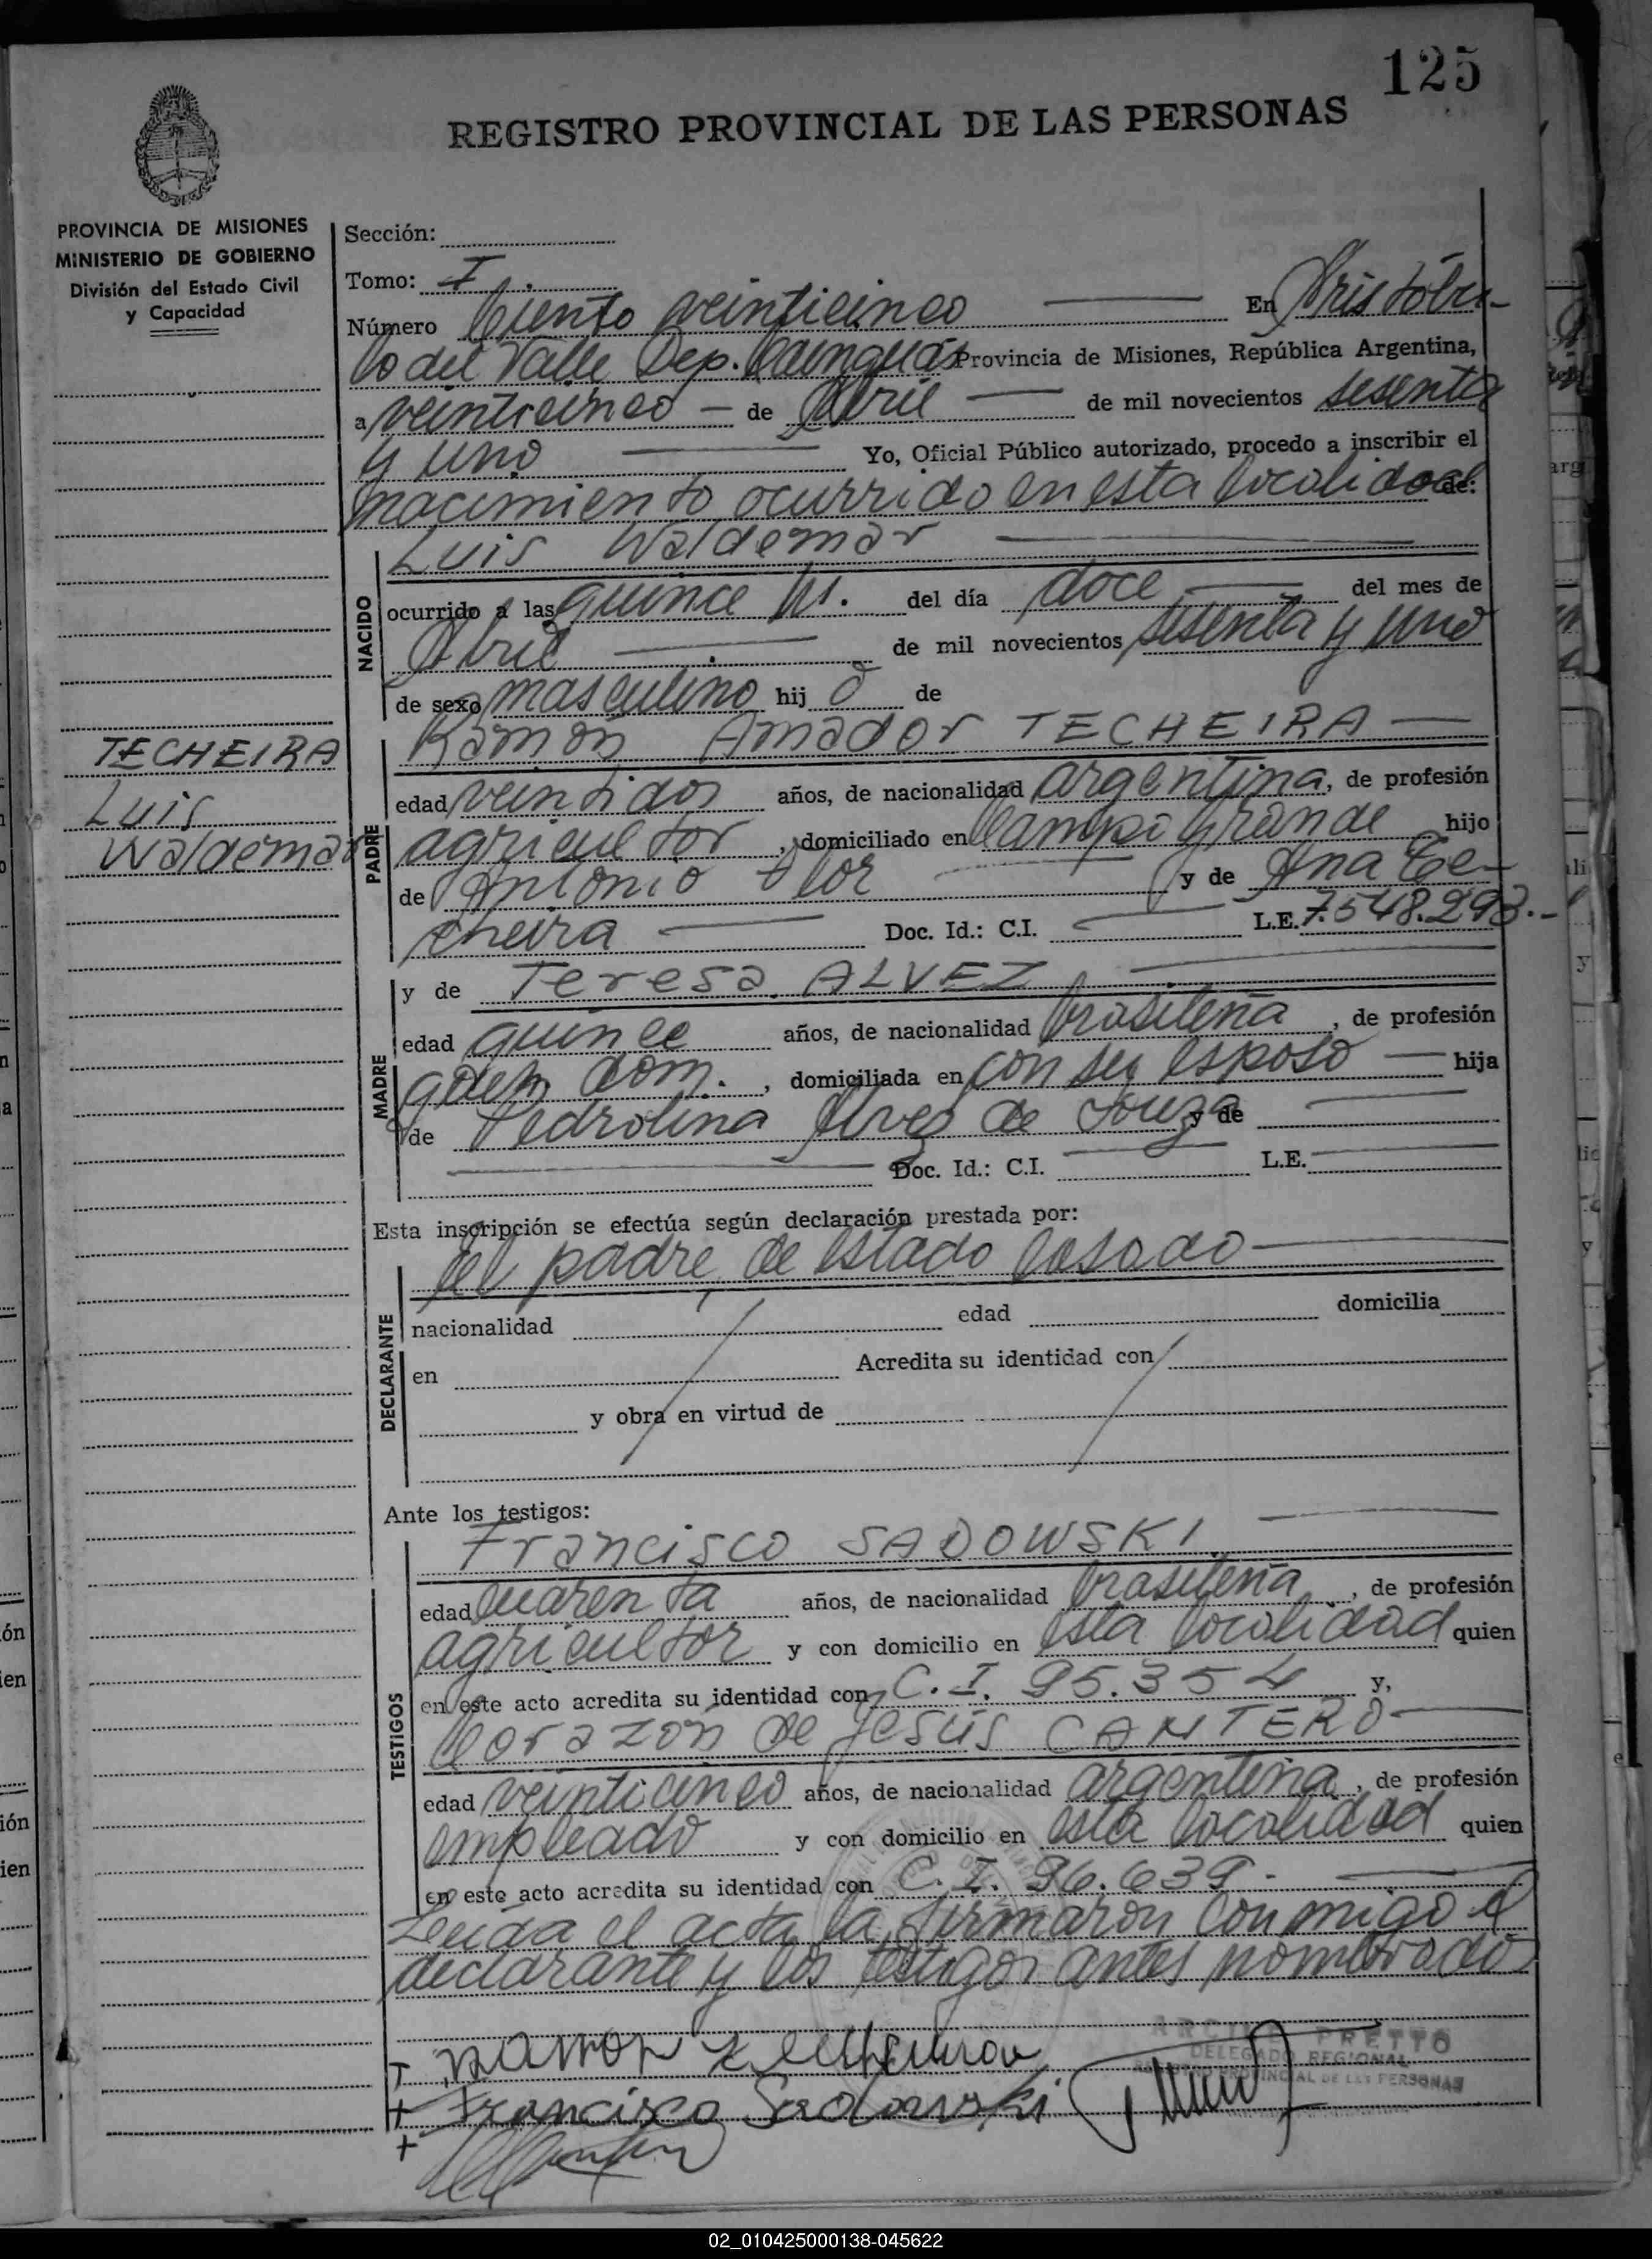 125
REGISTRO PROVINCIAL DE LAS PERSONAS
PROVINCIA DE MISIONES
MINISTERIO DE GOBIERNO
División del Estado Civil
y Capacidad
Sección:
Tomo: I
Número Ciento veinticinco En Aristóbu-
lo del Valle Dep. Cainguás Provincia de Misiones, República Argentina,
a veinticinco de Abril de mil novecientos sesenta
y uno Yo, Oficial Público autorizado, procedo a inscribir el
nacimiento ocurrido en esta localidad de:
NACIDO
Luis Waldemar
ocurrido a las quince hs. del día doce del mes de
Abril de mil novecientos sesenta y uno
de sexo masculino hij o de
TECHEIRA
Luis
Waldemar
PADRE
Ramón Amador TECHEIRA
edad veintidos años, de nacionalidad argentina, de profesión
agricultor, domiciliado en Campo Grande hijo
de Antonio Flor y de Ana Te-
cheira Doc. Id.: C.I. L.E. 7.548.293.-
MADRE
y de Teresa ALVEZ
edad quince años, de nacionalidad brasileña, de profesión
queh. dom., domiciliada en con su esposo hija
de Pedrolina Alvez de Souza y de
Doc. Id.: C.I. L.E.
Esta inscripción se efectúa según declaración prestada por:
DECLARANTE
del padre, de estado casado
nacionalidad edad domicilia
en Acredita su identidad con
y obra en virtud de
Ante los testigos:
TESTIGOS
Francisco SADOWSKI
edad cuarenta años, de nacionalidad brasileña, de profesión
agricultor y con domicilio en esta localidad quien
en este acto acredita su identidad con C.I. 95.354 y,
Corazón de Jesús CANTERO
edad veinticinco años, de nacionalidad argentina, de profesión
empleado y con domicilio en esta localidad quien
en este acto acredita su identidad con C.I. 96.639.-
Leida el acta la firmaron conmigo el
declarante y los testigos antes nombrados
+ Ramon Techeira
+ Francisco Sadowski
+
PRETTO
DELEGADO REGIONAL
REGISTRO PROVINCIAL DE LAS PERSONAS
02_010425000138-045622